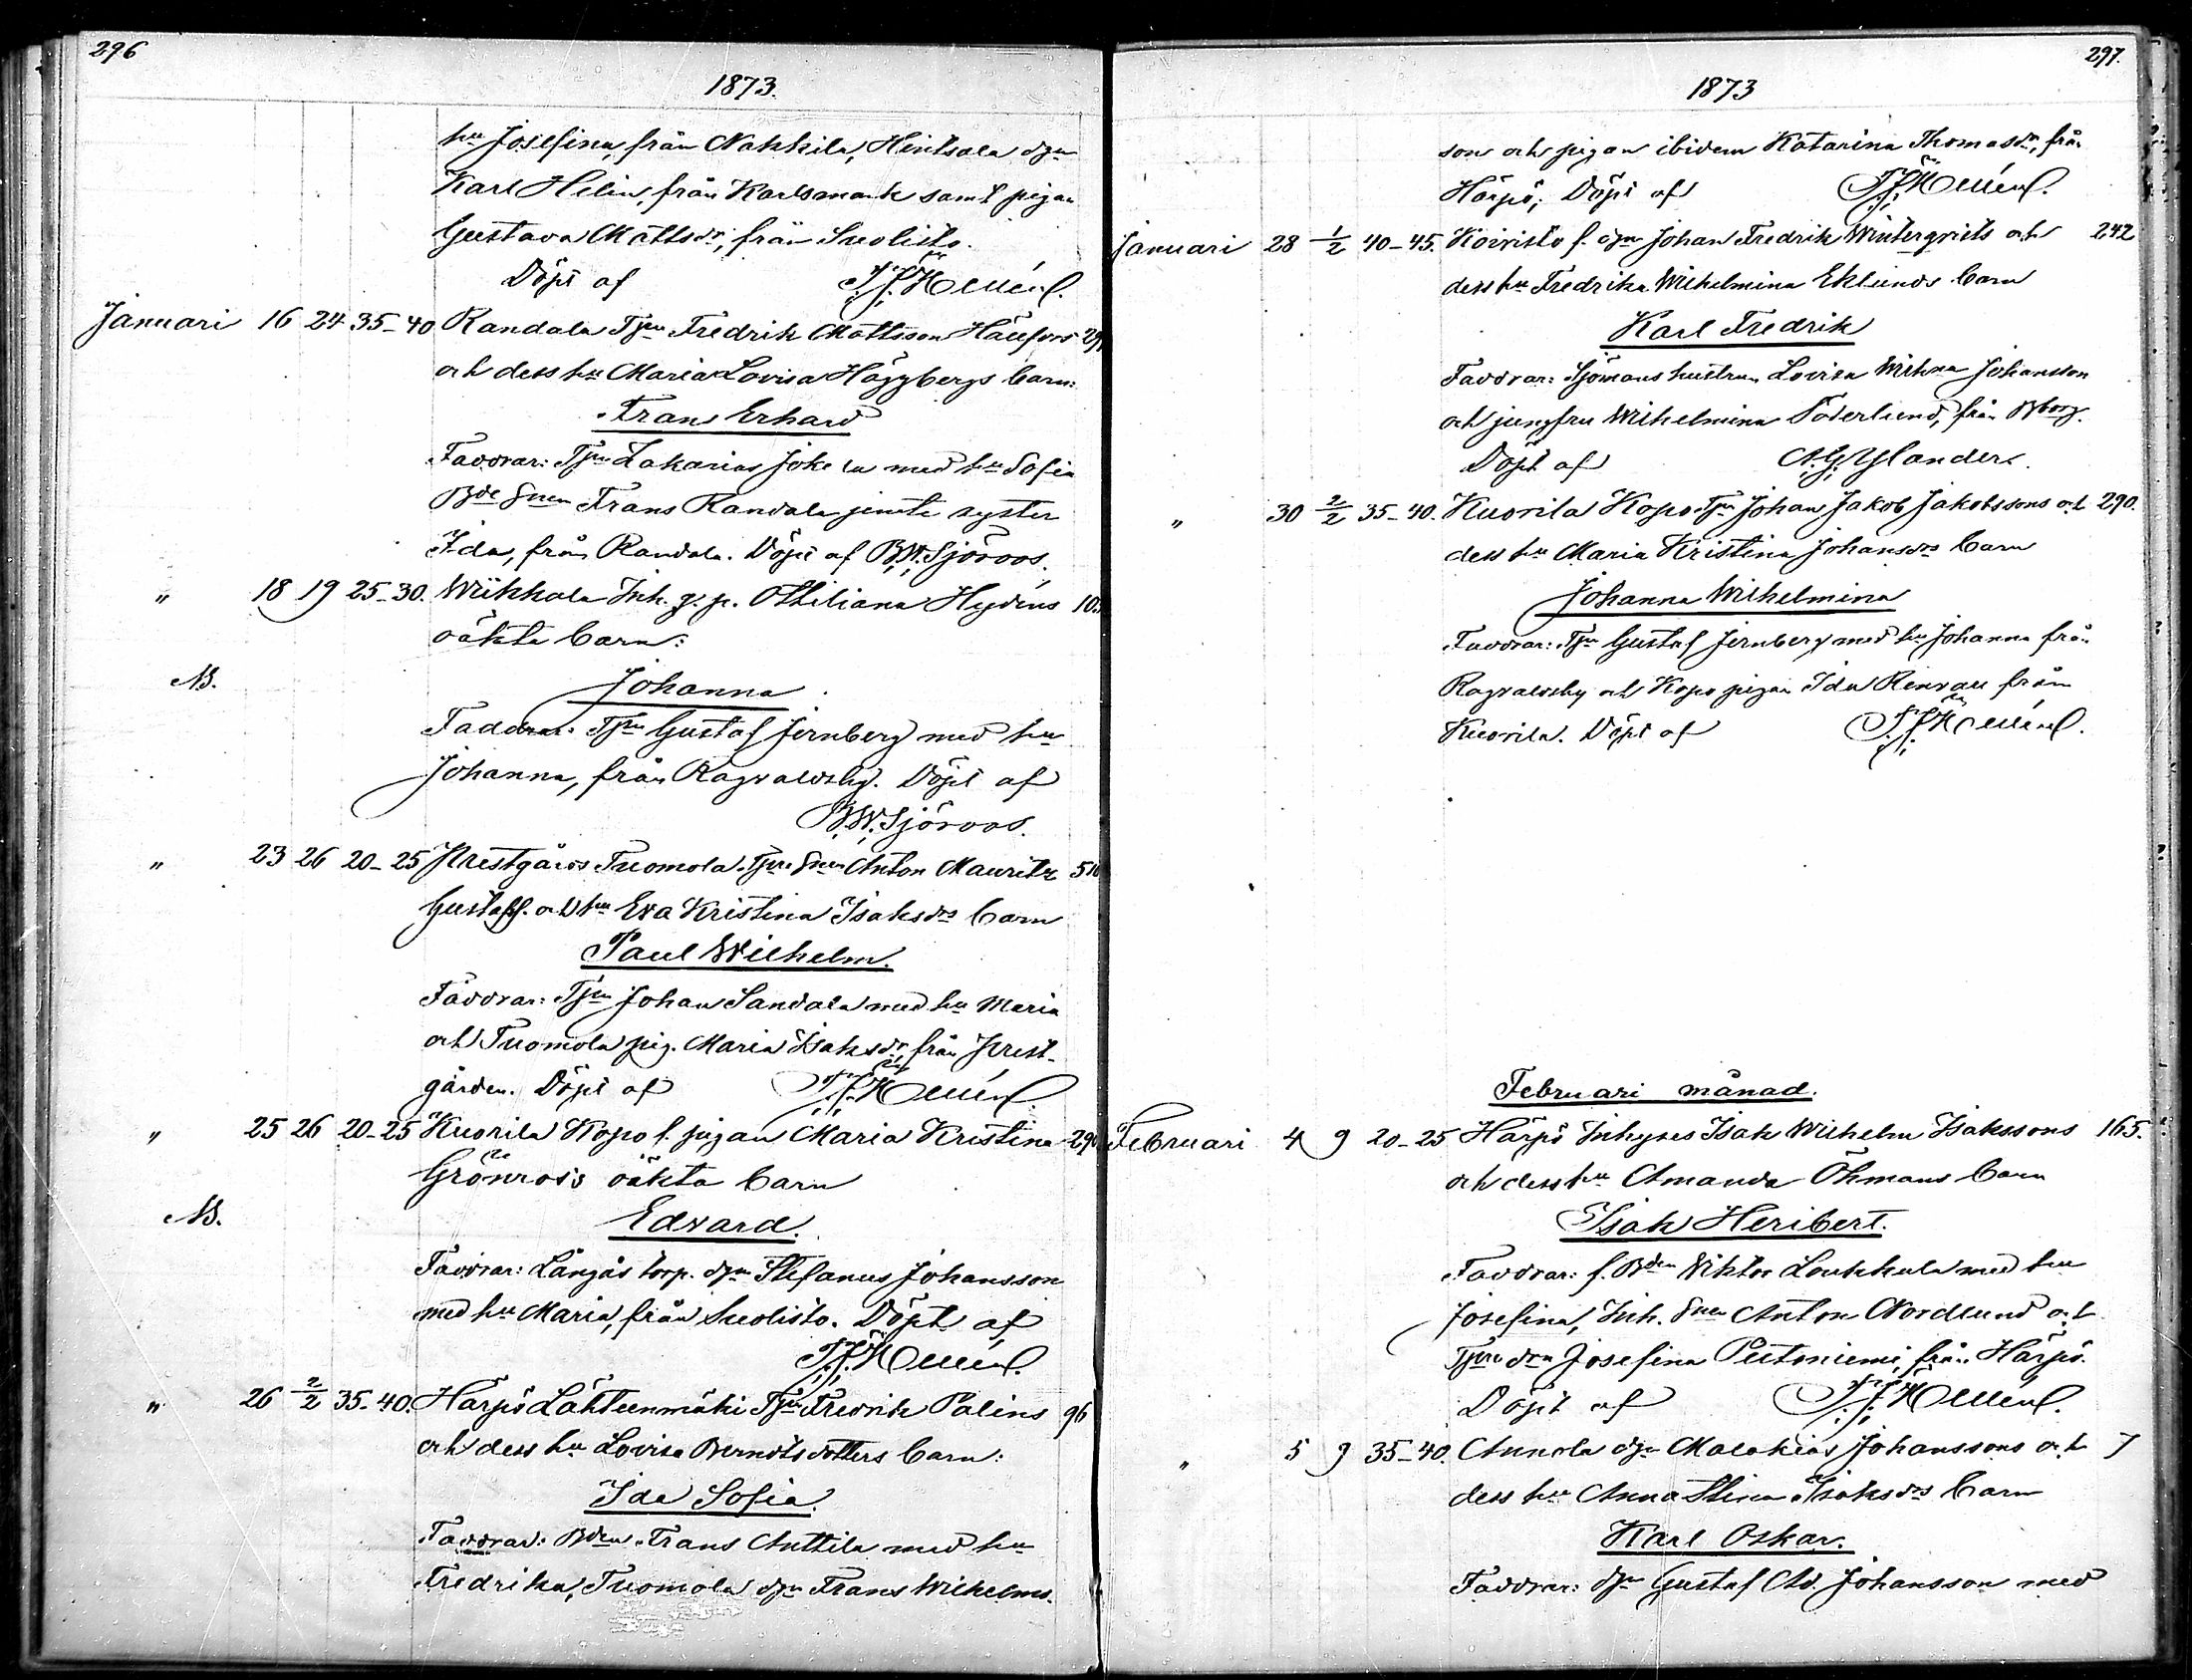 296
1873.
hu Josefina, från Nakkila, Hintsala dgn
Karl Helin, från Karlsmark samt pigan
Gustava Mattsdr, från Suolisto.
Döpt af
Januari 16 24 35-40 Randala Tjn Fredrik Mattsson Häuförs 29
och dess hu Maria Lovisa Häggbergs barn:
Frans Erhard
Faddrar: Tjn Zakarias Jokela med hu Sofia
Bde Snen Frans Randala jemte syster
Ida, från Randala. Döpt af B.W. Sjöroos.
" 18 19 25-30. Wiikkala Inh. g. p. Ottiliana Hydéns 10
oäkta barn:
NB. Johanna
Faddrar: Tjn Gustaf Jernberg med hu
Johanna, från Ragvaldsby. Döpt af
B.W. Sjöroos.
" 23 26 20-25 Prestgårds Tuomola Tjn Snen Anton Mauritz 510
Gustafss. och hu Eva Kristina Isaksdrs barn
Paul Wilhelm.
Faddrar: Tjn Johan Sandala med hu Maria
och Tuomola pig. Maria Isaksdr, från Prest-
gården. Döpt af
" 25 26 20-25 Kuorila Kopo f. pigan Maria Kristina 290
Grönroos oäkta barn
NB. Edvard.
Faddrar: Långås torp. dgn Stefanus Johansson
med hu Maria, från Suolisto. Döpt af
" 26 2/2 35-40. Harjs Lähteenmäki Tjn Fredrik Palins 96
och dess hu Lovisa Berndtsdotters barn:
Ida Sofia.
Faddrar: Bden Frans Anttila med hu
Fredrika, Tuomola dgn Frans Wilhelms-
297.
1873
son och pigan ibidem Katarina Thomasdr, från
Harjs; Döpt af
Januari 28 1/2 40-45. Koivisto f. dgn Johan Fredrik Winterqvists och 242
dess hu Fredrika Wilhelmina Eklunds barn
Karl Fredrik
Faddrar: Sjömans hustrun Lovisa Wilhna Johansson
och jungfru Wilhelmina Söderlund, från Bborg.
Döpt af A.G. Ylander.
" 30 2/2 35-40. Kuorila Kopo Tjn Johan Jakob Jakobssons och 290.
dess hu Maria Kristina Johansdrs barn
Johanna Wilhelmina
Faddrar: Tjn Gustaf Jernberg med hu Johanna från
Ragvaldsby och Kopo pigan Ida Renvall från
Kuorila. Döpt af
Februari månad.
Februari 4 9 20-25 Harjs Inhyses Isak Wilhelm Isakssons 165.
och dess hu Amanda Öhmans barn
Isak Heribert.
Faddrar: f. Bden Wiktor Loukkula med hu
Josefina, Inh. Snen Anton Nordlund och
Tjn drn Josefina Peltoniemi, från Harjs.
Döpt af
" 5 9 35-40. Annola dgn Malakias Johanssons och 7
dess hu Anna Stina Isaksdrs barn
Karl Oskar.
Faddrar: dgn Gustaf Ad. Johansson med